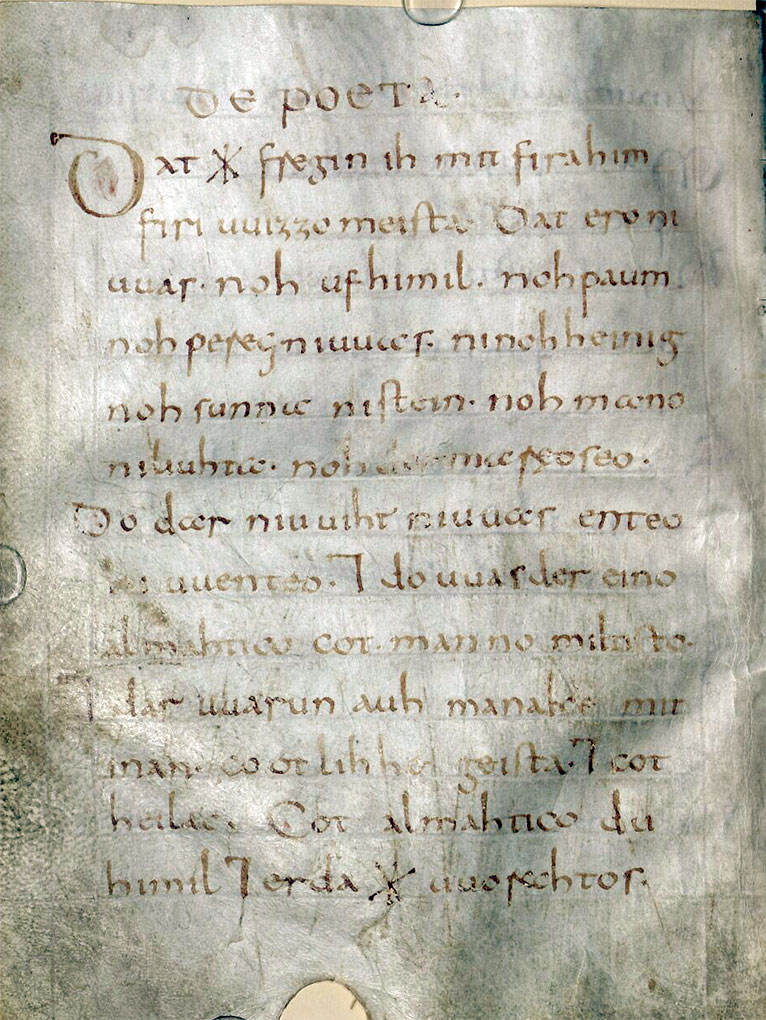 DE POETA.
Dat ᚼ fregin ih mit firahim
firi uuizzo meista. Dat ero ni
uuas. noh ufhimil. noh paum
noh peregniuuas. ninohheinig
noh sunna nistein. noh mano
niliuhta. noh der mareoseo.
Do dar niuuiht niuuas enteo
ni uuenteo. ⁊ do uuas der eino
almahtico cot. manno miltisto.
⁊ dar uuarun auh manake mit
man. cootlihhe geista. ⁊ cot
heilac. Cot almahtico du
himil ⁊ erda ᚼ uuorahtos.